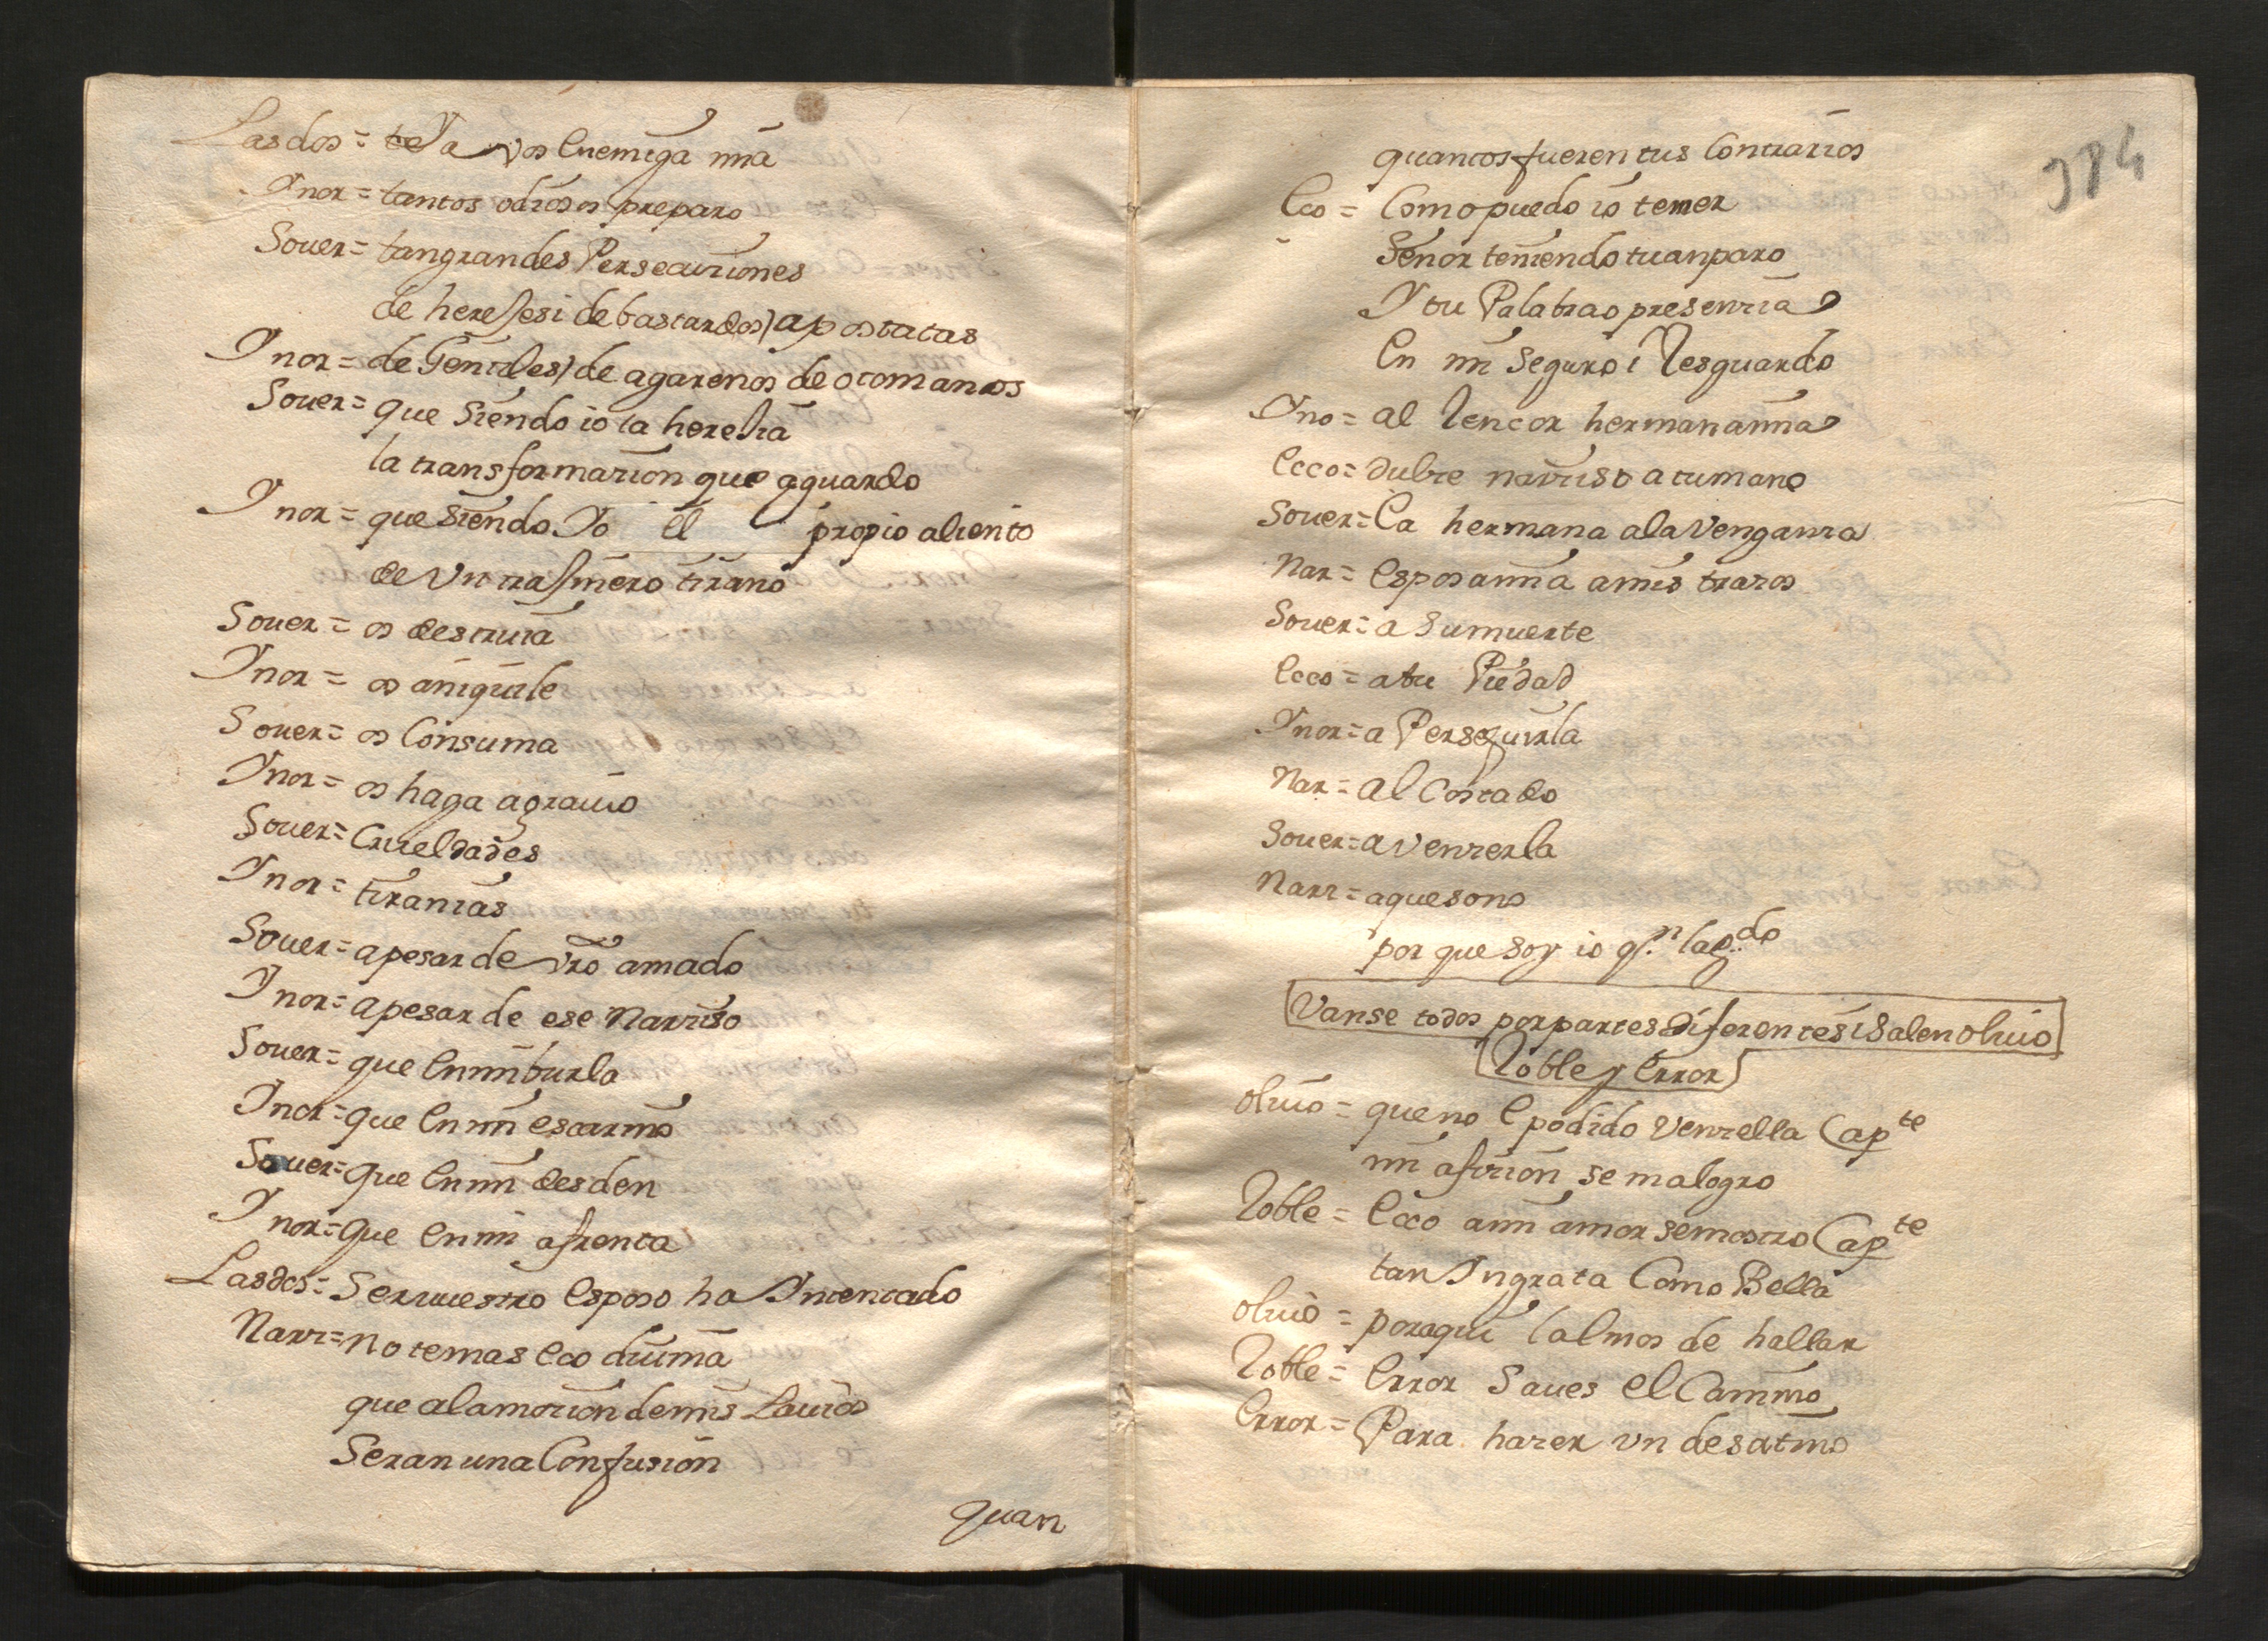 Las dos = te Ya vos Enemiga mia
Ynor = tantos odios os preparo
Souer = tan grandes Persecuciones
de herejes i de bastardos apostatas
Ynor = de Gentiles de agarenos de otomanos
Souer = que Siendo io la herejia
la transformacion que aguardo
Ynor = que Siendo Yo El propio aliento
de Vn tirano
Souer = os destruia
Ynor = os aniquile
Souer = os Consuma
Ynor = os haga agrauio
Souer = Crueldades
Ynor = tiranias
Souer = a pesar de vro amado
Ynor = a pesar de ese Narciso
Souer = que En mi burla
Ynor = que En mi escarnio
Souer = que En mi desden
Ynor = que En mi afrenta
Las dos = Ser vuestro Esposo ha Yntentado
Narz = no temas Eco diuina
que a la mocion de mis Lauios
Seran una Confusion
quan
384
quantos fueren tus Contrarios
Eco = Como puedo io temer
Señor teniendo tu anparo
Y tu Palabra o presencia
En mi Seguro i Resguardo
Yno = al Rencor hermana mia
Ecco = dulce narciso a tu mano
Souer = Ea hermana a la Venganza
Nar = Esposa mia a mis brazos
Souer = a Su muerte
Ecco = a tu Piedad
Ynor = a Perseguirla
Nar = al Costado
Souer = a Vencerla
Narz = aqueso no
por que soy io qn la gdo
Vanse todos por partes diferentes i Salen oluio
Roble y Error
oluio = que no E podido Vencella Capte
mi aficion se malogro
Roble = Ecco a mi amor se mostro Capte
tan Yngrata Como Bella
oluio = por aqui la emos de hallar
Roble = Error Saues el Camino
Error = Para hacer vn desatino